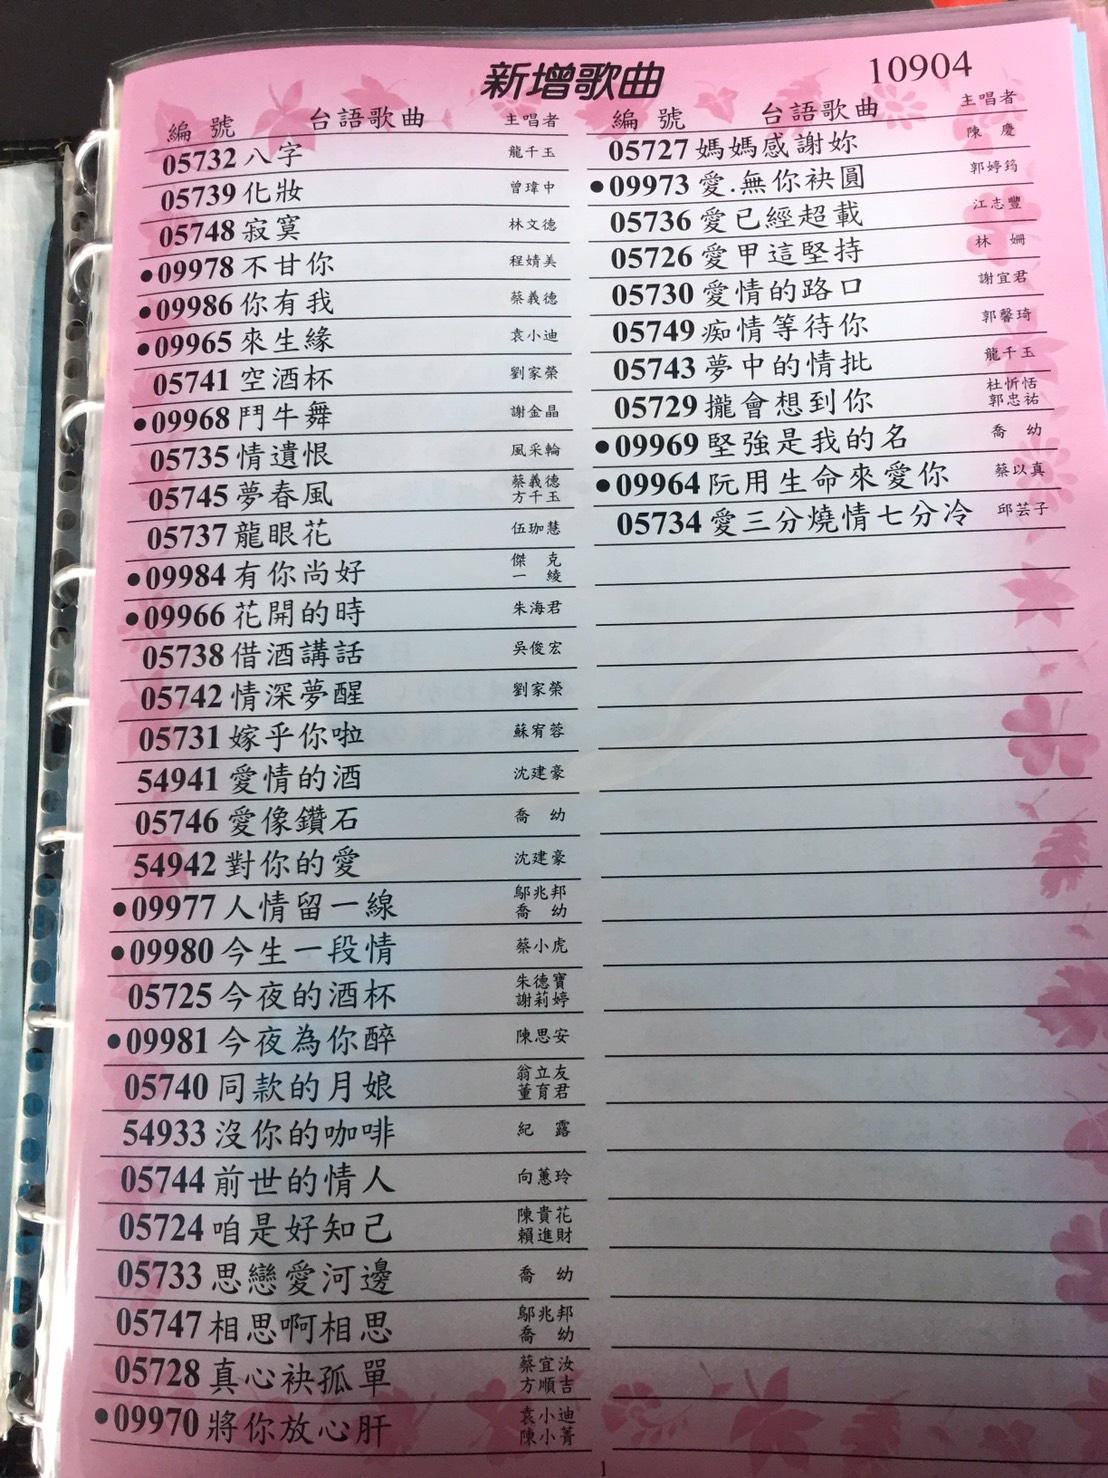 新增歌曲
10904
編號 台語歌曲 主唱者
05732 八字 龍千玉
05739 化妝 曾瑋中
05748 寂寞 林文德
●09978 不甘你 程婧美
●09986 你有我 蔡義德
●09965 來生緣 袁小迪
05741 空酒杯 劉家榮
●09968 鬥牛舞 謝金晶
05735 情遺恨 風采輪
05745 夢春風 蔡義德 方千玉
05737 龍眼花 伍珈慧
●09984 有你尚好 傑克 一綾
●09966 花開的時 朱海君
05738 借酒講話 吳俊宏
05742 情深夢醒 劉家榮
05731 嫁乎你啦 蘇宥蓉
54941 愛情的酒 沈建豪
05746 愛像鑽石 喬幼
54942 對你的愛 沈建豪
●09977 人情留一線 鄔兆邦 喬幼
●09980 今生一段情 蔡小虎
05725 今夜的酒杯 朱德寶 謝莉婷
●09981 今夜為你醉 陳思安
05740 同款的月娘 翁立友 董育君
54933 沒你的咖啡 紀露
05744 前世的情人 向蕙玲
05724 咱是好知己 陳貴花 賴進財
05733 思戀愛河邊 喬幼
05747 相思啊相思 鄔兆邦 喬幼
05728 真心袂孤單 蔡宜汝 方順吉
●09970 將你放心肝 袁小迪 陳小菁
編號 台語歌曲 主唱者
05727 媽媽感謝妳 陳慶
●09973 愛.無你袂圓 郭婷筠
05736 愛已經超載 江志豐
05726 愛甲這堅持 林姍
05730 愛情的路口 謝宜君
05749 痴情等待你 郭馨琦
05743 夢中的情批 龍千玉
05729 攏會想到你 杜忻恬 郭忠祐
●09969 堅強是我的名 喬幼
●09964 阮用生命來愛你 蔡以真
05734 愛三分燒情七分冷 邱芸子
1